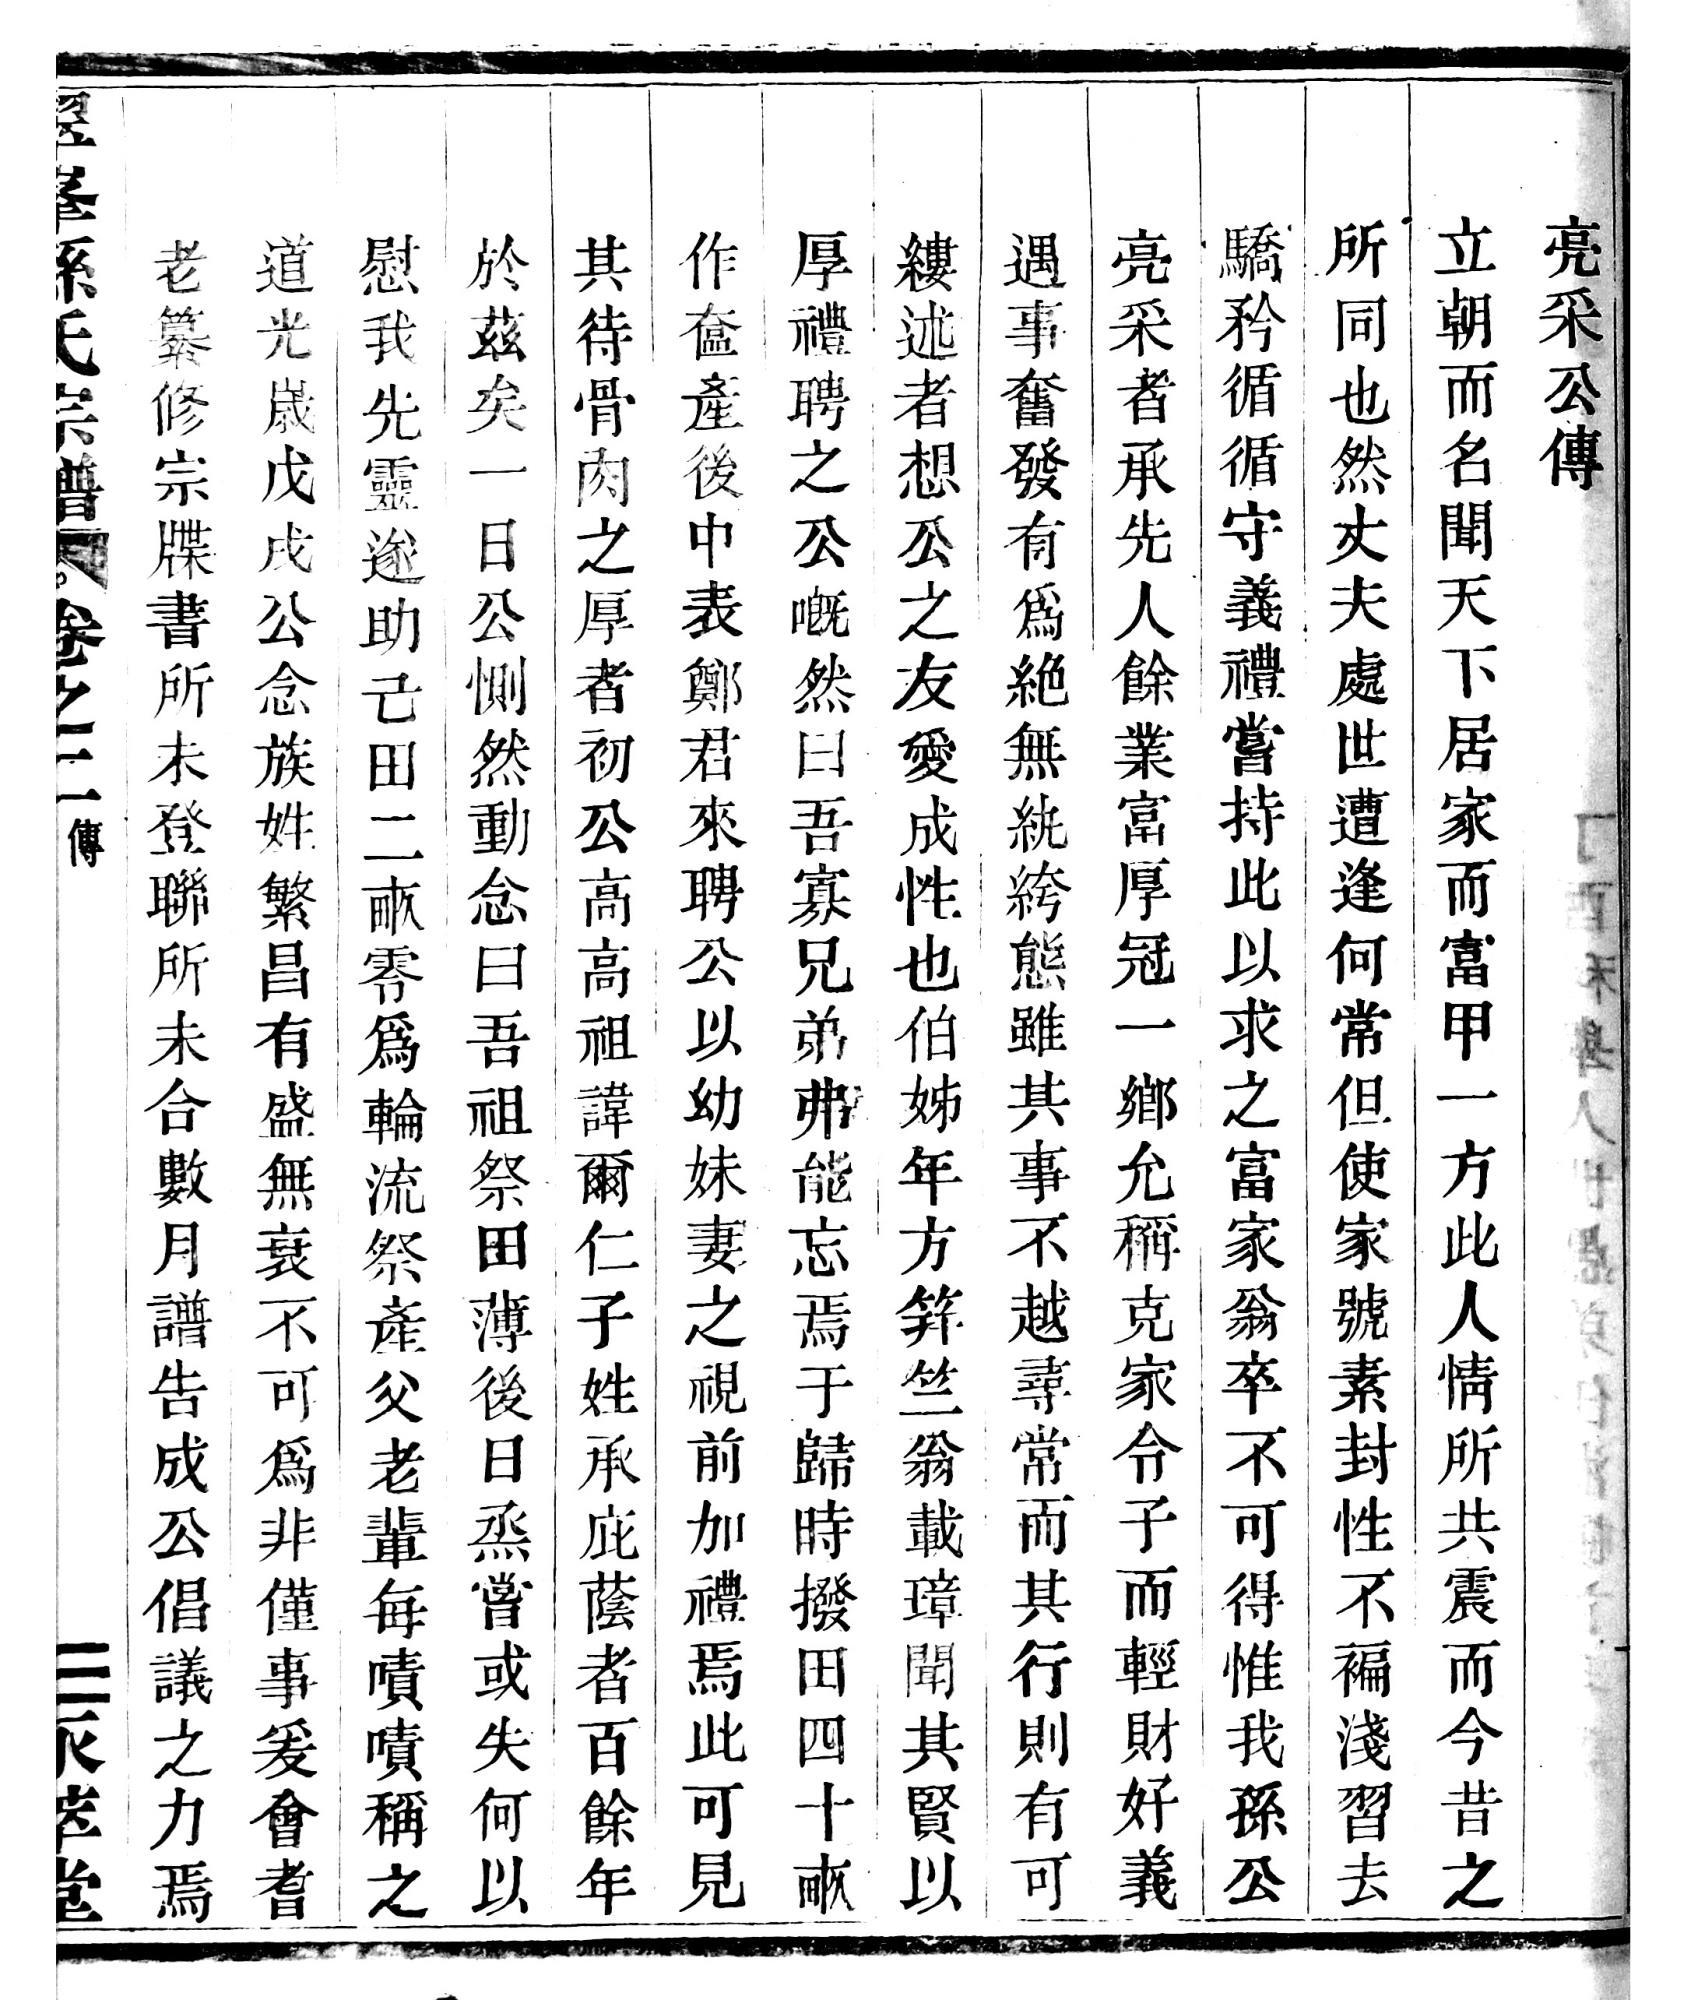 亮采公傳
立朝而名聞天下居家而富甲一方此人情所共震而今昔之
所同也然丈夫處世遭逢何常但使家號素封性不褊淺習去
驕矜循循守義禮嘗持此以求之富家翁卒不可得惟我孫公
亮采者承先人餘業富厚冠一鄉允稱克家令子而輕財好義
遇事奮發有爲絶無紈綺態雖其事不越尋常而其行則有可
縷述者想公之友愛成性也伯姊年方筓竺翁載璋聞其賢以
厚禮聘之公嘅然曰吾寡兄弟弗能忘焉于歸時撥田四十畝
作奩產後中表鄭君來聘公以幼妹妻之視前加禮焉此可見
其待骨肉之厚者初公高高祖諱爾仁子姓承庇蔭者百餘年
於茲矣一日公惻然動念曰吾祖祭田薄後日烝嘗或失何以
慰我先靈遂助己田二畝零爲輪流祭產父老輩每嘖嘖稱之
道光歲戊戌公念族姓繁昌有盛無衰不可爲非僅事爰會耆
老纂修宗牒書所未登聯所未合數月譜告成公倡議之力焉
峯孫氏宗譜 卷之二 傳 二 永萃堂